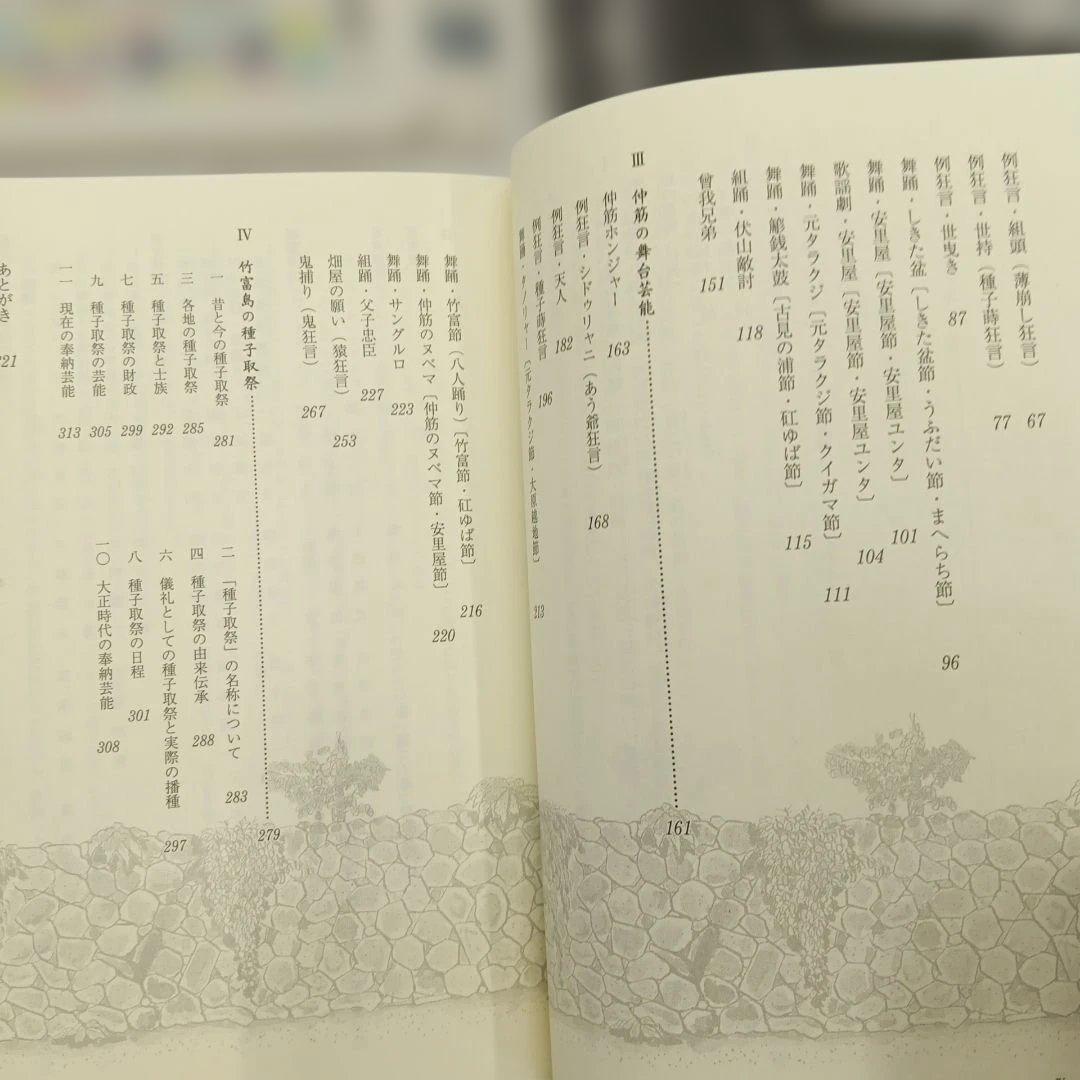 例狂言・組頭（薄崩し狂言） 67
例狂言・世持（種子蒔狂言） 77
例狂言・世曳き 87
舞踊・しきた盆〔しきた盆節・うふだい節・まへらち節〕 96
舞踊・安里屋〔安里屋節・安里屋ユンタ〕 101
歌謡劇・安里屋〔安里屋節・安里屋ユンタ〕 104
舞踊・元タラクジ〔元タラクジ節・クイガマ節〕 111
舞踊・鯲銭太鼓〔古見の浦節・矼ゆば節〕 115
組踊・伏山敵討 118
曾我兄弟 151
Ⅲ 仲筋の舞台芸能 161
仲筋ホンジャー 163
例狂言・シドゥリャニ（あう爺狂言） 168
例狂言・天人 182
例狂言・種子蒔狂言 196
〔元タラクジ節・大原越地節〕 213
舞踊・竹富節（八人踊り）〔竹富節・矼ゆば節〕 216
舞踊・仲筋のヌベマ〔仲筋のヌベマ節・安里屋節〕 220
舞踊・サングルロ 223
組踊・父子忠臣 227
畑屋の願い（猿狂言） 253
鬼捕り（鬼狂言） 267
Ⅳ 竹富島の種子取祭 279
一 昔と今の種子取祭 281
二 「種子取祭」の名称について 283
三 各地の種子取祭 285
四 種子取祭の由来伝承 288
五 種子取祭と士族 292
六 儀礼としての種子取祭と実際の播種 297
七 種子取祭の財政 299
八 種子取祭の日程 301
九 種子取祭の芸能 305
一〇 大正時代の奉納芸能 308
一一 現在の奉納芸能 313
あとがき 321